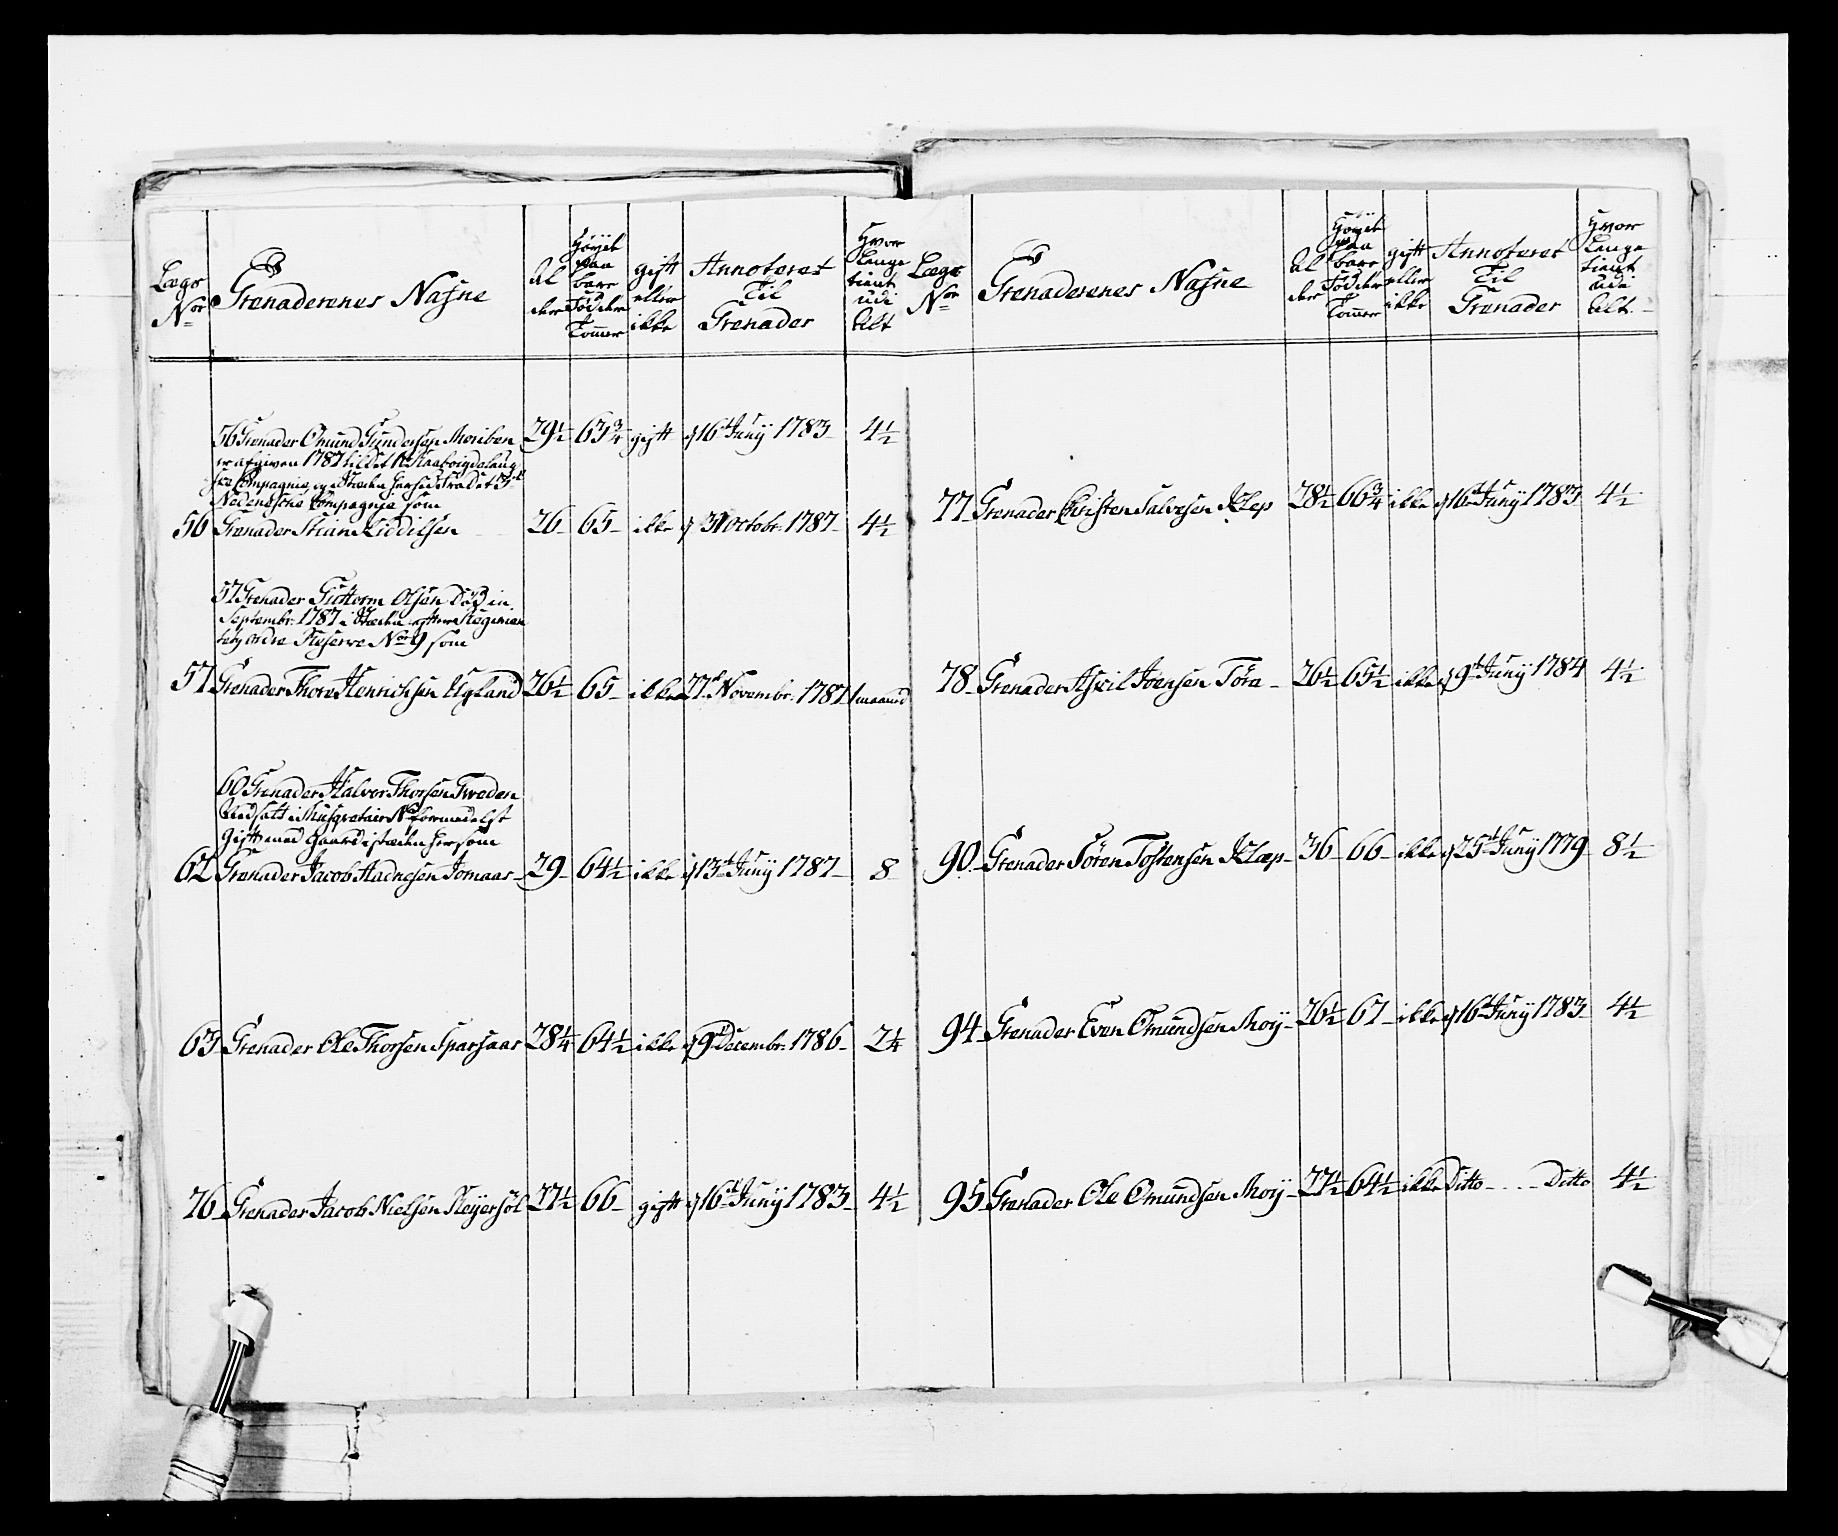 Lægs
Nor
Grenaderenes Nafne
Al
der
Høyde
paa
bare
Fødder
Tommer
gift
eller
ikke
Annoteret
Til
Grenader
Hvor
Længe
tient
udi
Alt
56 Grenader Omund Gundersen
er afgiven 1787 til det
Compagnie
Nedenesske Compagnie som
29½ 63¾ gift d 16t Juny 1783 4½
56 Grenader Stian Kiddelsen 26 65 ikke d 31 octobr. 1787 4½
57 Grenader Guttorm Olsen Død in
Septembr. 1787 i Stæden efter Regimen
tets ordre Reserve Nor 9 som
57 Grenader Thore Henrichsen Ugland 26½ 65 ikke 27t Novembr. 1787 1 maaned
60 Grenader Halvor Thorsen Tveden
Nedsatt i Musqvetair No formedelst
Gift med Gaard i stæden her som
62 Grenader Jacob Aadnesen Jomaas 29 64½ ikke d 13t Juny 1787 8
63 Grenader Ole Thorsen Sparsaas 28¼ 64½ ikke d 9t Decembr. 1786 2¼
76 Grenader Jacob Nielsen Reyersøl 27½ 66 gift d 16t Juny 1783 4½
Lægs
Nor
Grenaderenes Nafne
Al
der
Høyde
paa
bare
Fødder
Tommer
gift
eller
ikke
Annoteret
Til
Grenader
Hvor
Længe
tient
udi
Alt
77 Grenader Christen Salvesen Klep 28½ 66¾ ikke d 16t Juny 1783 4½
78 Grenader Joensen Töra 26½ 65½ ikke d 9t Juny 1784 4½
90 Grenader Sören Tostensen Klæp 36 66 ikke d 25t Juny 1779 8½
94 Grenader Even Omundsen Moy 26½ 67 ikke d 16t Juny 1783 4½
95 Grenader Ole Omundsen Moy 27½ 64½ ikke Ditto Ditto 4½